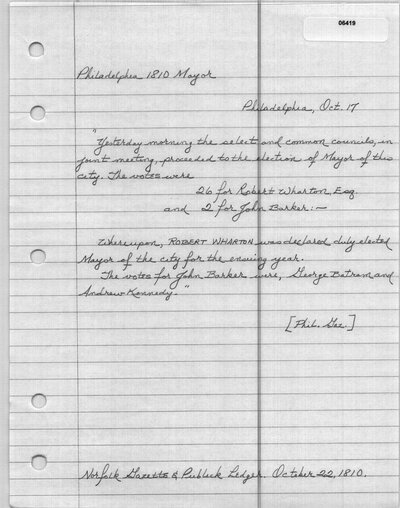 06419
Philadelphia 1810 Mayor
Philadelphia, Oct. 17
"Yesterday morning the select and common councils, in
joint meeting, proceeded to the election of Mayor of this
city. The votes were
26 for Robert Wharton, Esq
and 2 for John Barker:—
Whereupon, ROBERT WHARTON was declared duly elected
Mayor of the city for the ensuing year.
The votes for John Barker were, George Batram and
Andrew Kennedy."
[Phil. Gaz.]
Norfolk Gazette & Publick Ledger. October 22, 1810.